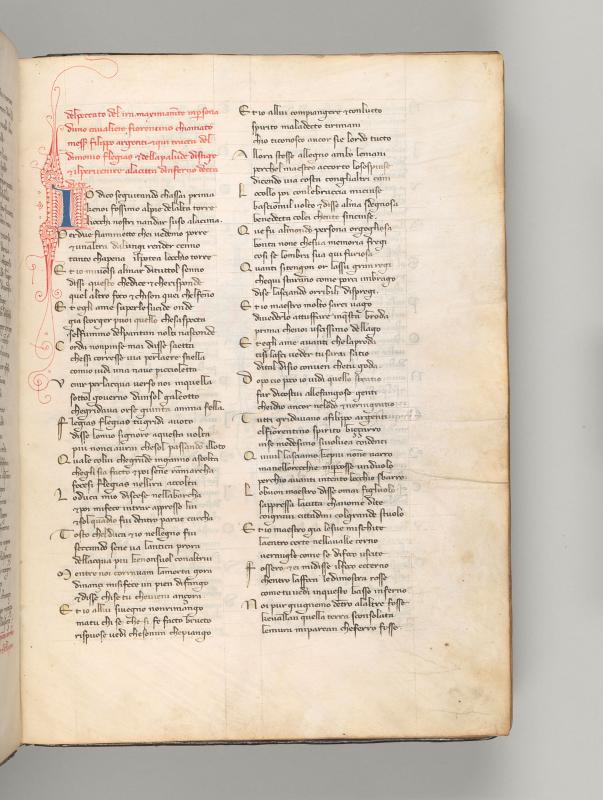 del peccato del ira maximante in persona
duno cavaliere fiorentino chiamato
mess filippo argenti et qui tracta del
dimonio flegias et della palude distige
et il pervenire ala citta dinferno detta
dite
IO dico seguitando chassai prima
kenoi fossimo alpie delalta torre
liocchi nostri nandar suso alacima
Per due fiammette chei vedemo porre
et unaltra dilungi render cenno
tanto chapena il potea locchio torre
Et io mi volsi almar di tuttol senno
dissi questo che dice et che risponde
quel altro foco et chison quei chelfenno
Et egli ame super le sucide onde
gia scorger puoi quello che saspecta
sel fummo del pantan nolti nasconde
Corda non pinse mai dasse saetta
chessi corresse via per laere snella
como vidi una nave piccioletta
Venir per lacqua verso noi in quella
sottol governo dun sol galeotto
che gridava orse giunta anima fella
Flegias flegias tu gridi avoto
disse lomio signore aquesta volta
piu non ciavrai che sol passando illoto
Quale colui che grande inganno ascolta
che gli sia facto et poi sene ramarcha
fecesi flegias nellira accolta
Loduca mio discese nella barcha
et poi mi fece intrar appresso lui
et sol quadio fui dentro parve carcha
Tosto chelduca et io nellegno fui
secando sene va lantica prora
dellacqua piu kenonsuol conaltrui
Mentre noi corravam lamorta gora
dinanzi misi fece un pien difango
et disse chi se tu che vieni anzi ora
Et io allui sivegno non rimango
matu chi se che si se facto bructo
rispuose vedi che son un che piango
Et io allui con piangere et con lucto
spirito maladecto ti rimani
chio ti conosco ancor sie lordo tucto
Allora stesse allegno ambo le mani
per chel maestro accorto lo sospinse
dicendo via costa con gli altri cani
Lo collo poi con le braccia mi cinse
basciommil volto et disse alma sdegnosa
benedecta colei chente sincinse
Que fu almondo persona orgogliosa
bonta none che sua memoria fregi
cosi se lombra sua qui furiosa
Quanti si tengon or lassu gran regi
che qui staranno come porci in brago
di se lasciando orribili dispregi
Et io maestro molto sarei vago
di vederlo attuffare in questa broda
prima chenoi uscissimo dellago
Et egli ame avanti che la proda
ti si lasci veder tu sarai satio
di tal disio converra che tu goda
Dopo cio poco vidi quello stratio
far di costui alle fangose genti
che dio ancor nelodo et ne ringratio
Tutti gridavano a filippo argenti
el fiorentino spirito bizzarro
in se medesimo si volvea codenti
Quivil lasciamo ke piu non ne narro
ma nell orecchie mi percosse un duolo
per chio avanti intento locchio sbarro
Lo buon maestro disse omai figliuolo
sappressa la citta cha nome dite
co i gravi cittadini col grande stuolo
Et io maestro gia lesue meschite
la entro certe nella valle cerno
vermiglie come se di foco uscite
Fossero et ei mi disse il foco eterno
chentro laffoca le dimostra rosse
come tu vedi in questo basso inferno
Noi pur giugnemo dentro alaltre fosse
ke vallan quella terra sconsolata
le mura mi parean che ferro fosse